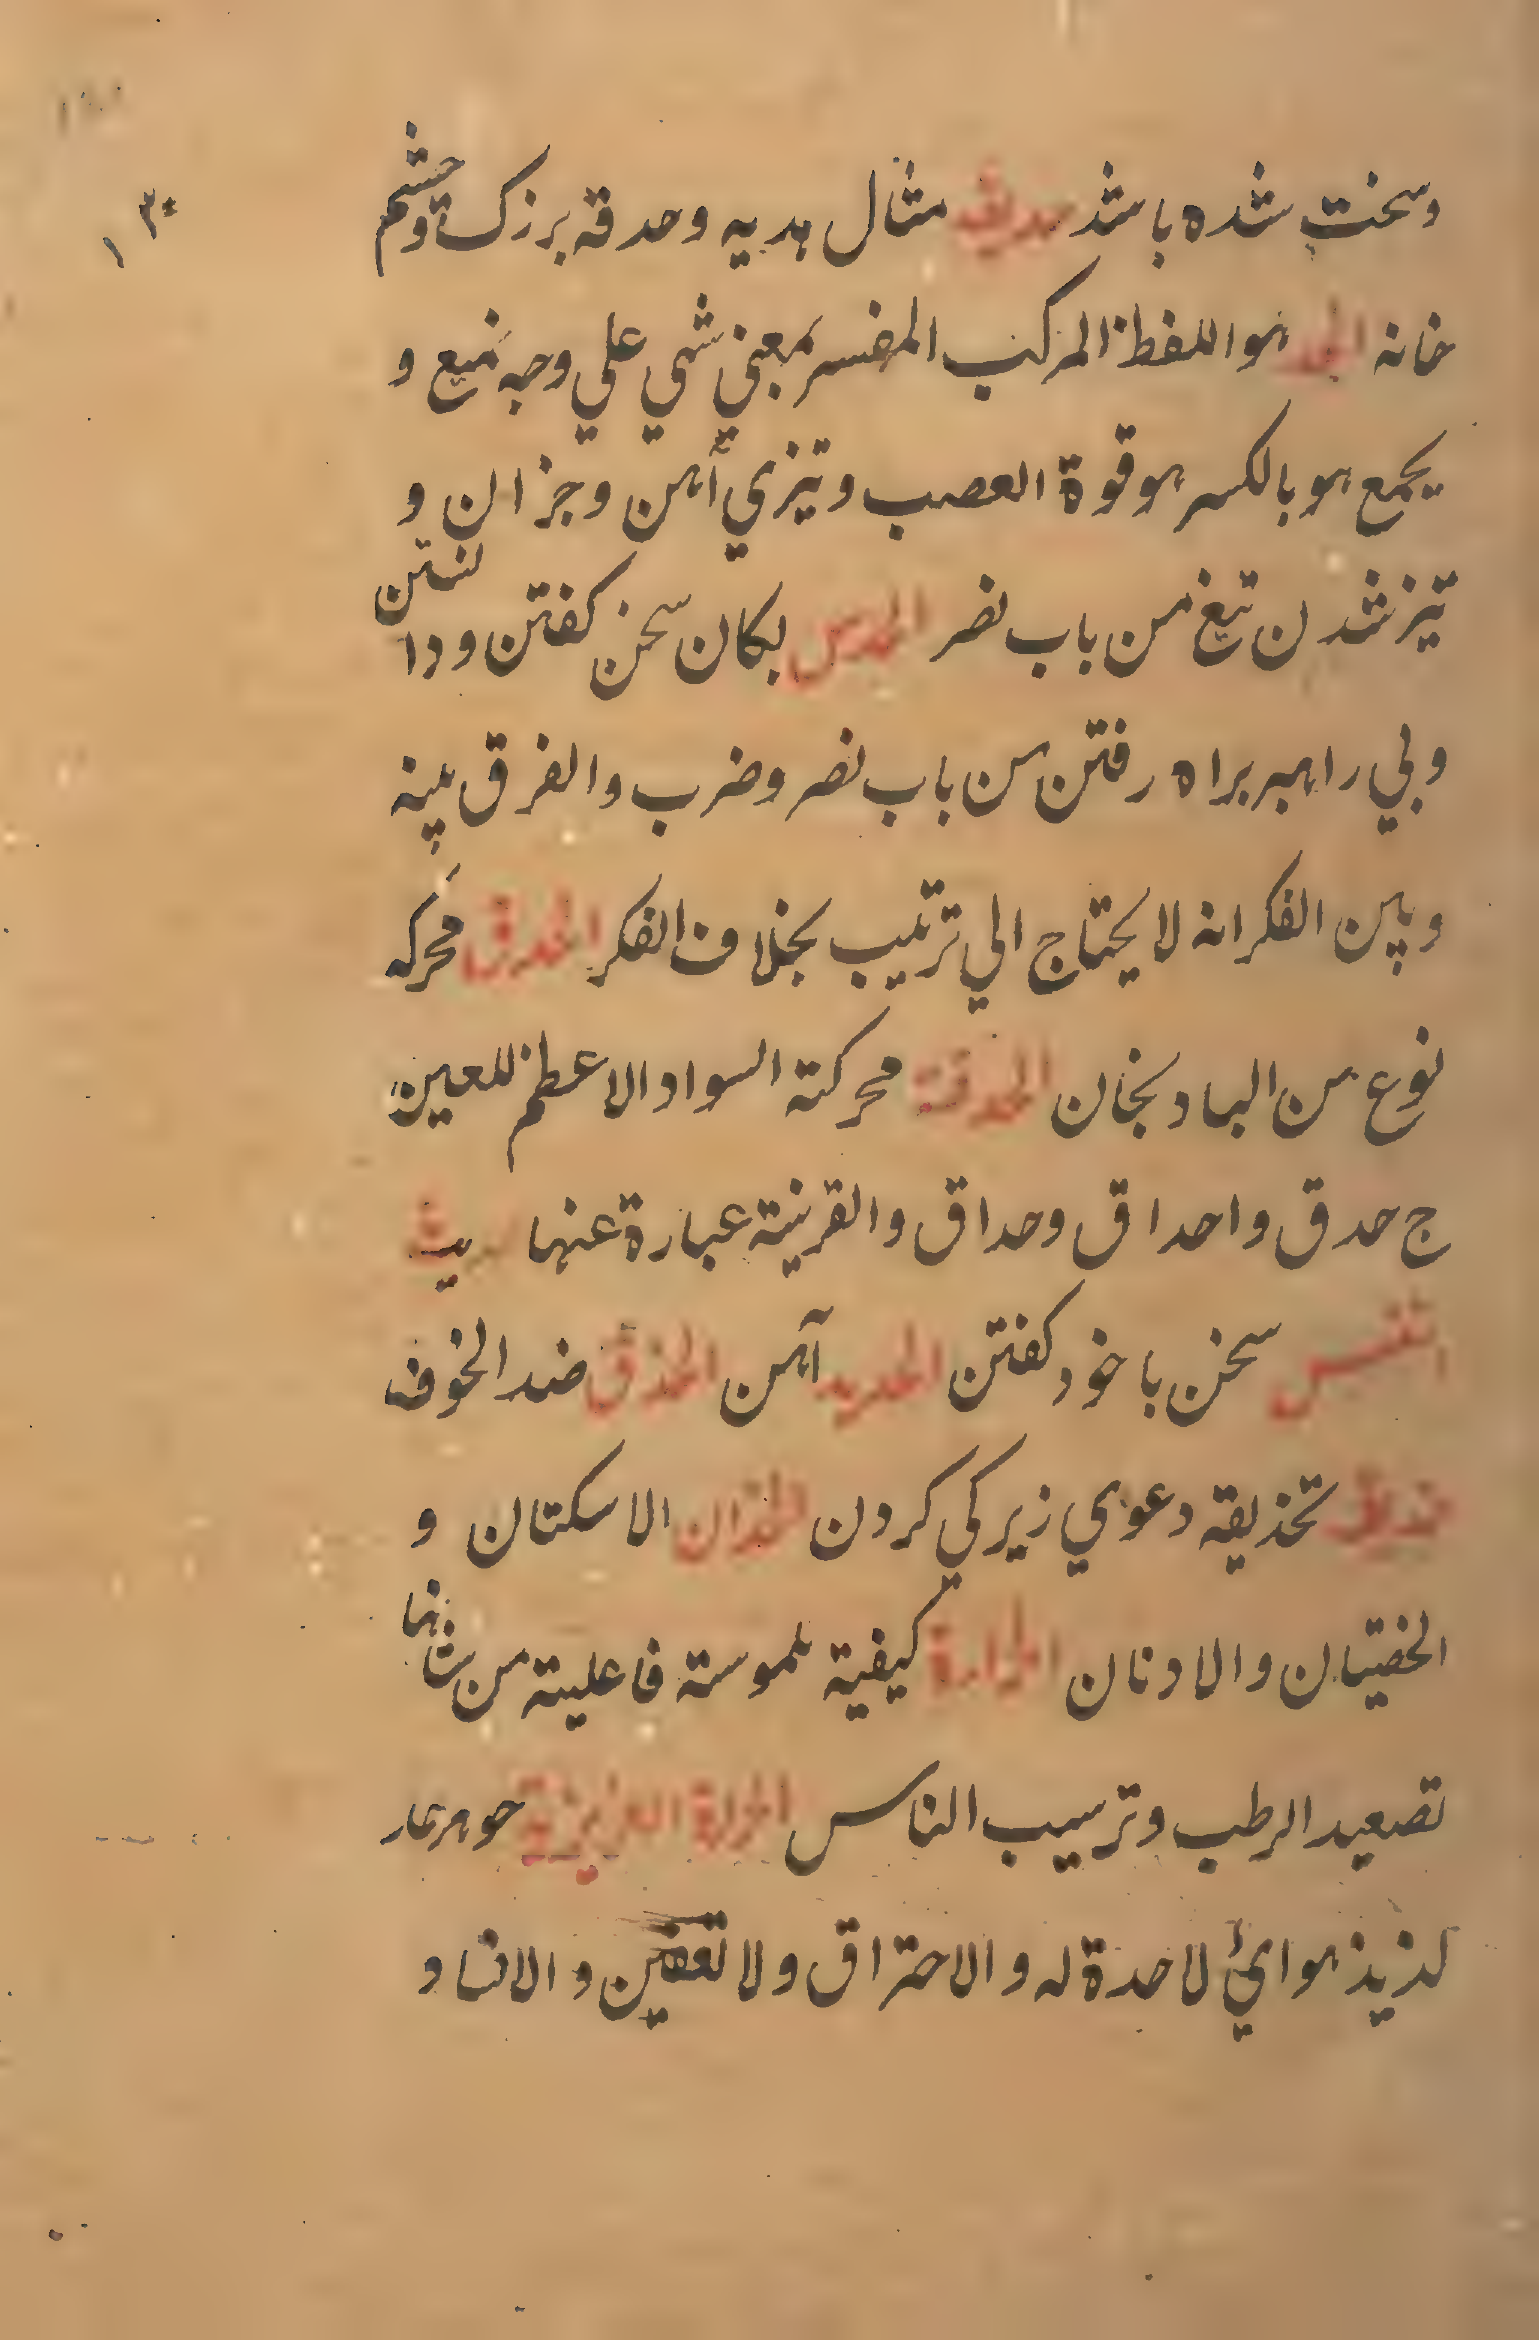 ۱۳۰
وسخت شده باشد حدیقه مثال هدیه وحدقه بزرک وچشم
خانه الحد هو اللفظ المرکب المفسر بمعني شي علي وجه منیع و
یجمع هو بالکسر هو قوة العصب وتیزي آهن وجز ان و
تیز شدن تیغ من باب نصر الحدس بکمان سخن کفتن ودانستن
وبي راهبر براه رفتن من باب نصر وضرب والفرق بینه
وبین الفکر انه لا یحتاج الي ترتیب بخلاف الفکر الحدق محرکه
نوع من البادنجان الحدقة محرکته السواد الاعظم للعین
ج حدق واحداق وحداق والقرنیة عبارة عنها حدیث
النفس سخن با خود کفتن الحدید آهن الحذق ضد الخوف
حذیق تحذیقه دعوي زیرکي کردن الحذان الاسکتان و
الخصیتان والاذنان الحرارة کیفیة ملموسته فاعلیته من شانها
تصعید الرطب وترسیب الناس الحرارة الغریزیة جوهر حار
لذیذ هوائي لا حدة له والاحتراق ولا تعفین والافساد